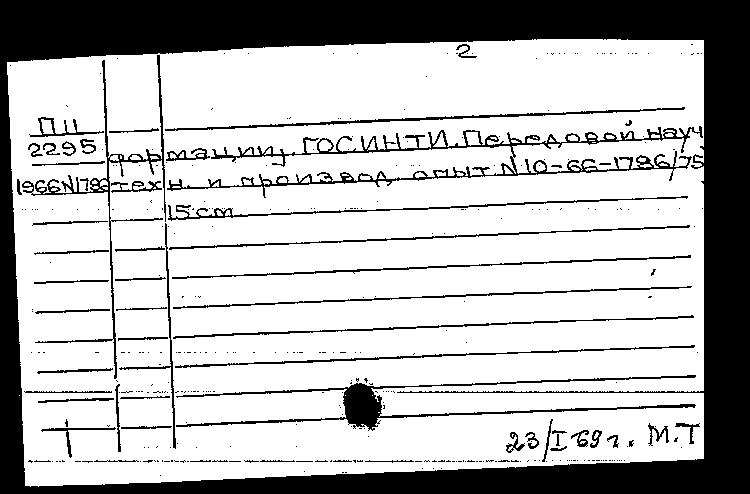 2
П11
2295
формации). ГОСИНТИ. Передовой науч
1966 N1786 техн. и производ. опыт. N 10-66-1786/75
15 см
23/I 69 г. М.Т